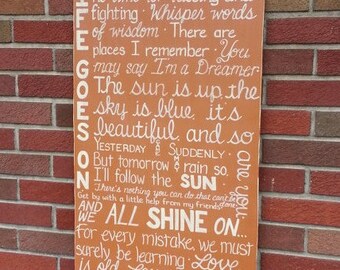 LIFE GOES ON
no time for fussing and
fighting · Whisper words
of wisdom · There are
places I remember · You
may say I'm a Dreamer
The sun is up the
sky is blue it's
beautiful and so
are you
Yesterday Suddenly ·
But tomorrow rain so
I'll follow the SUN
There's nothing you can do that can't be
done
Get by with a little help from my friends
AND WE ALL SHINE ON...
For every mistake, we must
surely be learning · Love
is old